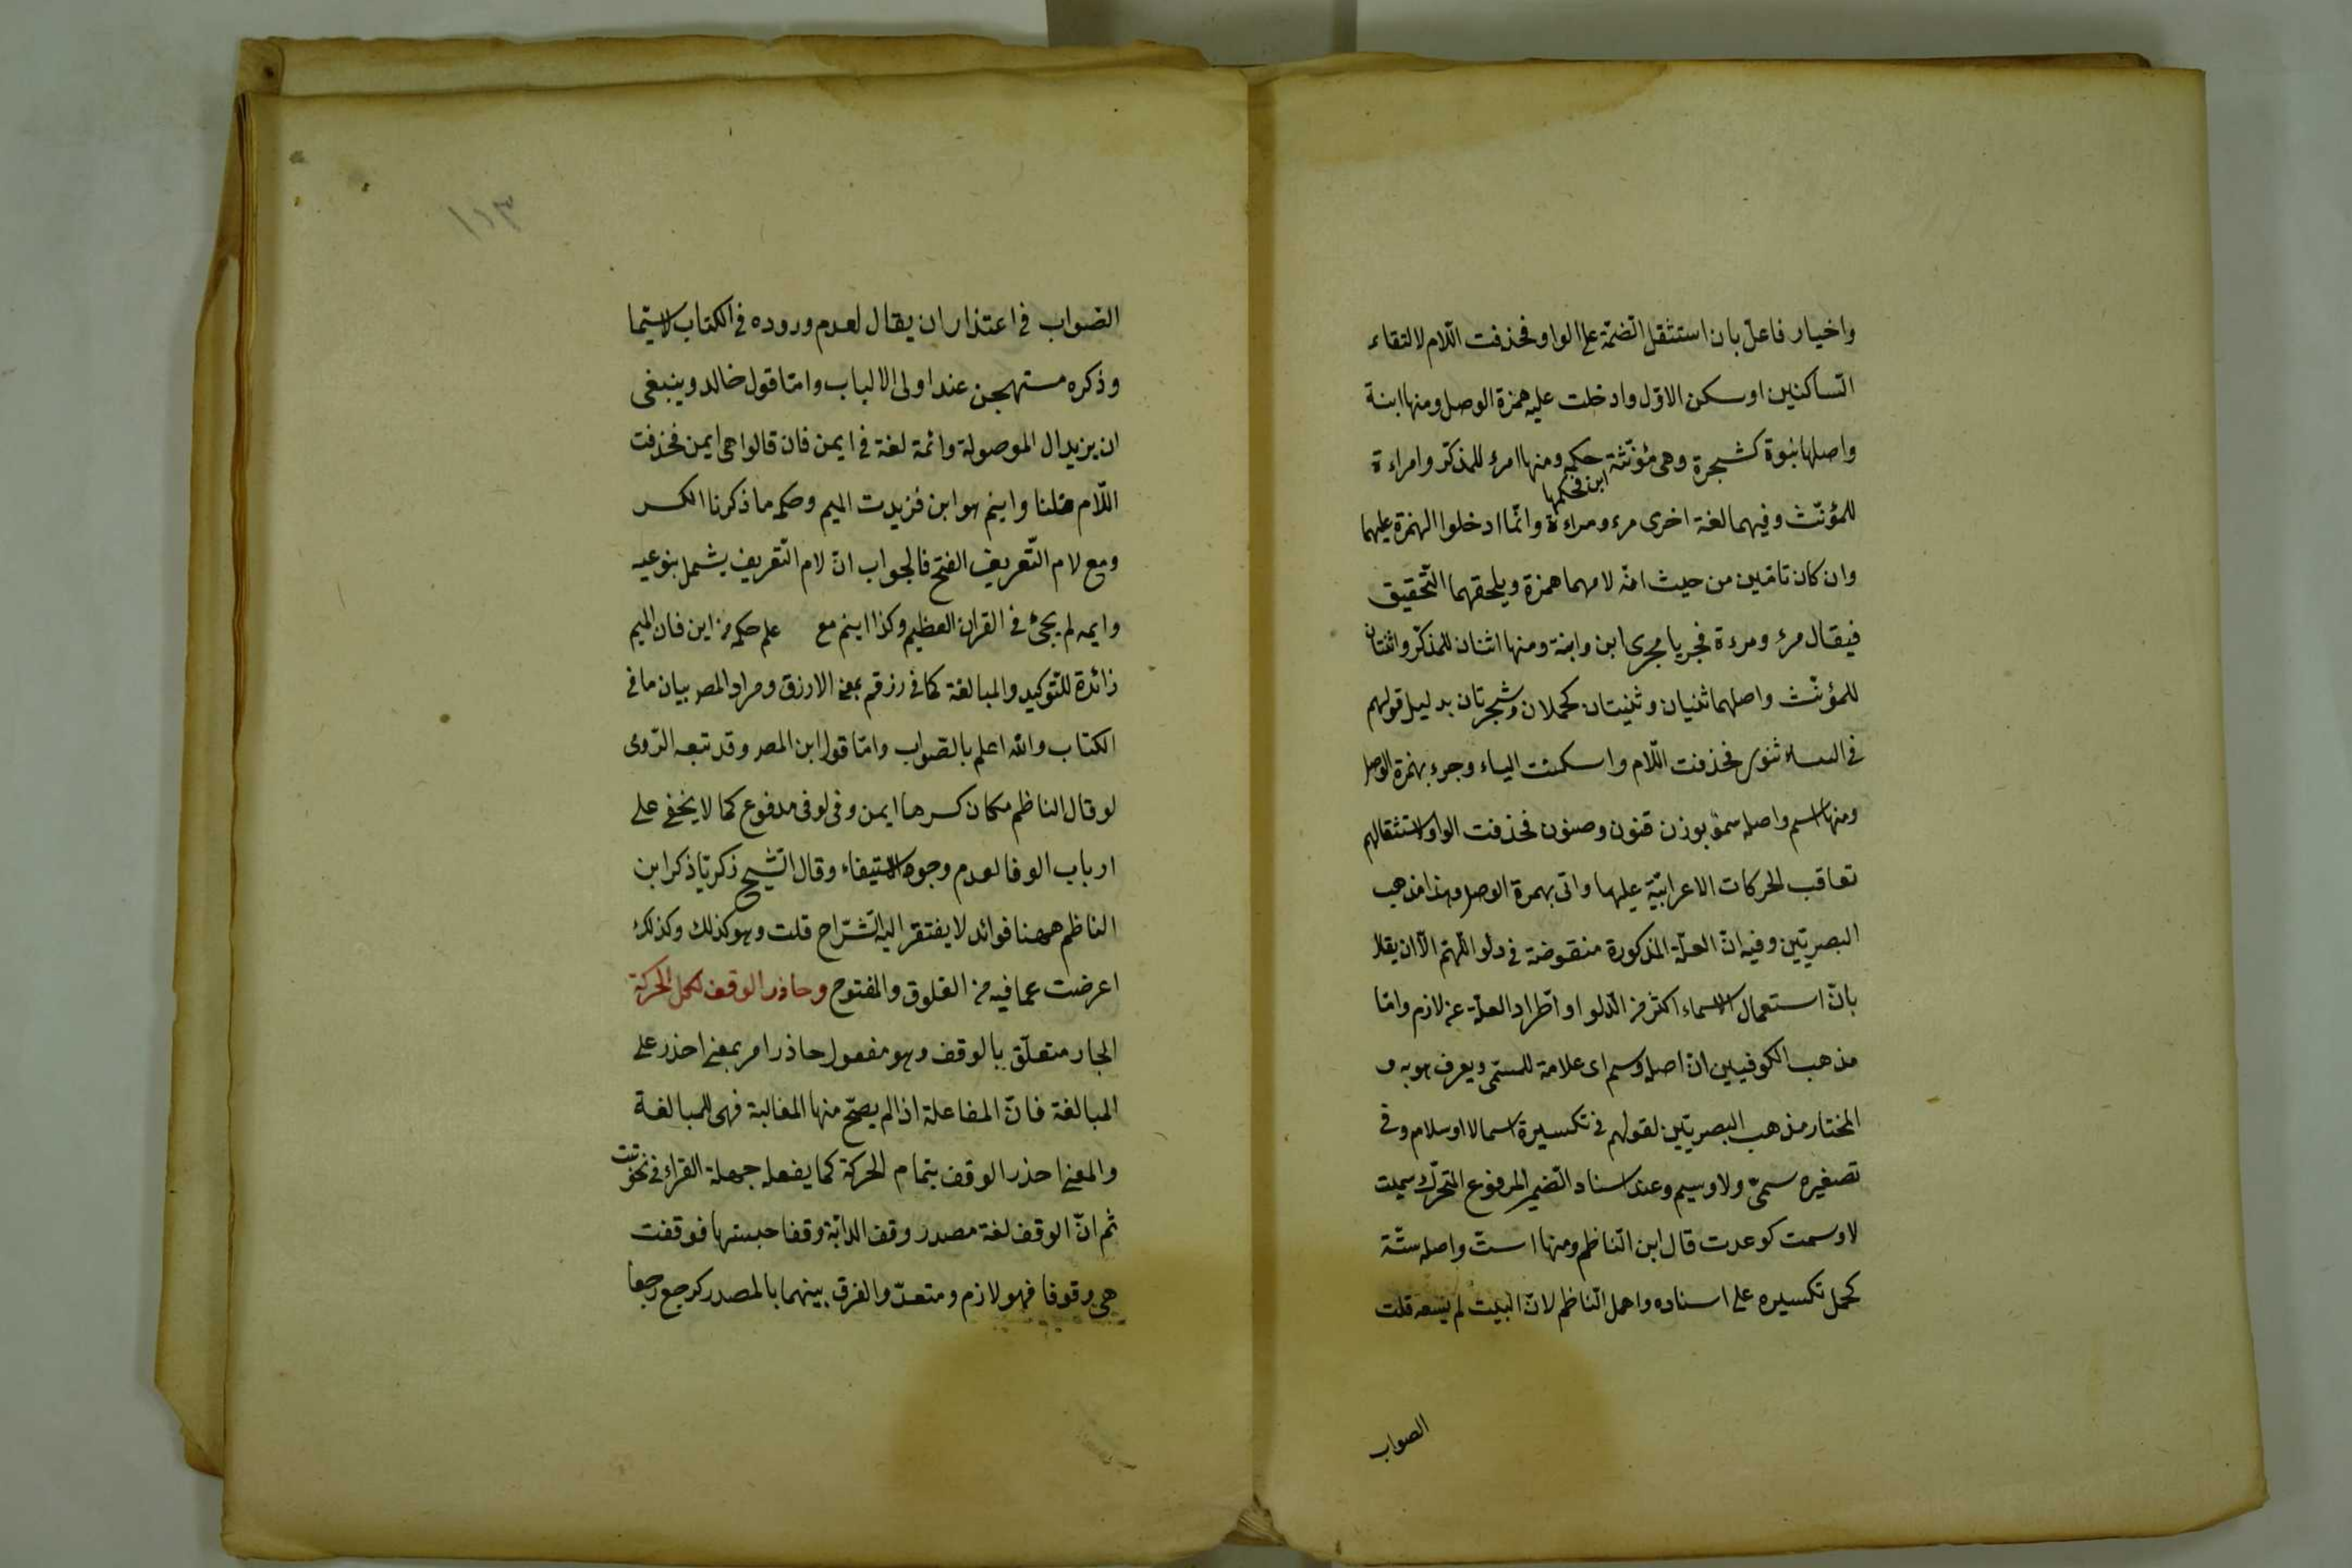 واخيار فاعلّ بان استثقل الضمّة على الواو فحذفت اللّام لالتقاء
السّاكنين او سكن الاوّل وادخلت عليه همزة الوصل ومنها ابنة
واصلها بنوة كشجرة وهى مؤنّثة حكم ومنها امرء للمذكّر وامراءة
ابن فحكمها
للمؤنّث وفيهما لغة اخرى مرء ومراءة وانّما ادخلوا الهمزة عليهما
وان كان تامّين من حيث انّه لامهما همزة ويلحقهما التّحقيق
فيقال مرء ومرءة فجريا مجرى ابن وابنة ومنها اثنان للمذكّر واثنتان
للمؤنّث واصلهما ثنيان وثنيتان كحملان وشجرتان بدليل قولهم
فى ثنوى فحذفت اللّام واسكنت الياء وجىء بهمزة الوصل
ومنها اسم واصله سمو بوزن قنون وصنون فحذفت الواو لاستثقالهم
تعاقب الحركات الاعرابيّة عليها واتى بهمزة الوصل وهذا مذهب
البصريّين وفيه انّ العلّة المذكورة منقوضة فى دلو اللّهمّ الّا ان يقال
بانّ استعمال الاسماء اكثر من الدلو او اطراد العلّة غير لازم وامّا
مذهب الكوفيين انّ اصله وسم اى علامة للمسمّى ويعرف هو به و
المختار مذهب البصريّين لقولهم فى تكسيره اسما لا اوسلام وفى
تصغيره سمىّ ولا وسيم وعند اسناد الضمير المرفوع المتحرّك سميت
لا وسمت كوعدت قال ابن النّاظم ومنها است واصله ستة
كحمل تكسيره على استاده واهمل النّاظم لانّ البيت لم يسعه قلت
الصواب
١٥٣
الصّواب فى اعتذار ان يقال لعدم وروده فى الكتاب لا سيّما
وذكره مستهجن عند اولى الالباب وامّا قول خالد وينبغى
ان يزيد ال الموصولة وائمة لغة فى ايمن فان قالوا هى ايمن فحذفت
اللّام قلنا وابنم هو ابن فزيدت الميم وحكم ما ذكرنا الكسر
ومع لام التّعريف الفتح فالجواب انّ لام التّعريف يشمل بنوعيه
وايمه لم يجئ فى القران العظيم وكذا ابنم مع علم حكمه من ابن فان الميم
زائدة للتّوكيد والمبالغة كما فى رزقم بمعنى الازرق ومراد المص بيان ما فى
الكتاب واللّه اعلم بالصّواب وامّا قول ابن المص وقد تبعه الرّومى
لو قال الناظم مكان كسرها ايمن وفى لوفى مدفوع كما لا يخفى على
ارباب الوفا لعدم وجود الاستيفاء وقال الشّيخ زكريّا ذكر ابن
الناظم ههنا فوائد لا يفتقر اليه الشّرّاح قلت وهو كذلك وكذلك
اعرضت عما فيه من الغلوق والمفتوح وحاذر الوقف بكل الحركة
الجار متعلّق بالوقف وهو مفعول حاذر امر بمعنى احذر على
المبالغة فانّ المفاعلة اذا لم يصحّ منها المغالبة فهى للمبالغة
والمعنى احذر الوقف بتمام الحركة كما يفعله جهلة القراء فى نحو
ثم انّ الوقف لغة مصدر وقف الدابّة وقفا حبستها فوقفت
هى وقوفا فهو لازم ومتعدّ والفرق بينهما بالمصدر كرجع رجعا